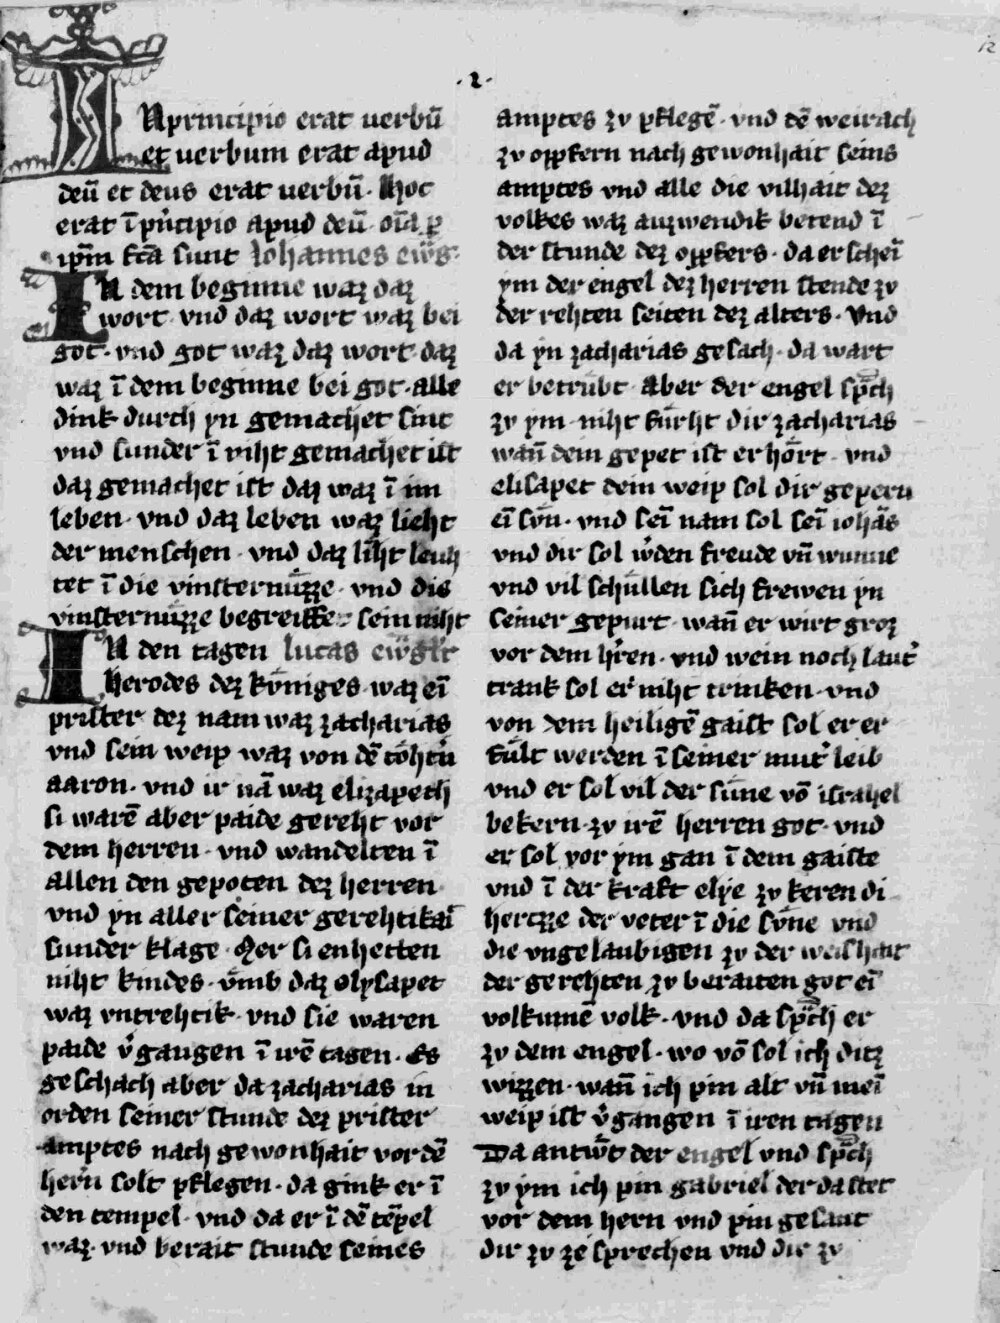 12
·1·
IN principio erat uerbū
et uerbum erat apud
deū et deus erat uerbū · hoc
erat ī pͥncipio apud deū · oīa ꝑ
ip̄m fc̄a sunt Iohannes ew̄s·
IN dem beginne waz daz
wort · vnd daz wort waz bei
got · vnd got waz daz wort · daz
waz ī dem beginne bei got · alle
dink durch yn gemachet sint
vnd sunder ī niht gemachet ist
daz gemachet ist daz waz ī im
leben · vnd daz leben waz lieht
der menschen · vnd daz liht leuh
tet ī die vinsternüzze · vnd die
vinsternüzze begreiffe sein niht
IN den tagen lucas
herodes dez kv́niges · waz eī
prister dez nam waz zacharias
vnd sein weip waz von dē töhtn̄
aaron · vnd ir nā waz elizapeth
si warē aber paide gereht vor
dem herren · vnd wandelten ī
allen den gepoten dez herren
vnd yn aller seiner gerehtikaī
sunder klage · Mer si enhetten
niht kindes · v̄mb daz olysapet
waz vntrehtik · vnd sie waren
paide v̓gangen ī irē tagen · Es
geschach aber da zacharias in
orden seiner stunde dez prister
amptes nach gewonhait vor dē
hern̄ solt pflegen · da gink er ī
den tempel · vnd da er ī dē tēpel
waz · vnd berait stunde seines
amptes zv pflegē · vnd dē weirach
zv opfern nach gewonhait seins
amptes vnd alle die vilhait dez
volkes waz auzwendik betend ī
der stunde dez opfers · da erscheī
ym der engel dez herren stende zv
der rehten seiten dez alters · Vnd
da yn zacharias gesach · da wart
er betrübt · Aber der engel sp̄ch
zv ym · niht fürht dir zacharias
wan̄ dein gepet ist erhört · vnd
elisapet dein weip sol dir gepern
eī sv́n · vnd seī nam sol seī iohās
vnd dir sol w̓den freude vn̄ wunne
vnd vil schüllen sich frewen yn
seiner gepurt · wan̄ er wirt groz
vor dem hr̄en · vnd wein noch laut̓
trank sol er niht trinken · vnd
von dem heiligē gaist sol er er
fült werden ī seiner mut̓ leib
vnd er sol vil der süne vō israhel
bekern · zv irē herren got · vnd
er sol vor ym gan ī dem gaiste
vnd ī der kraft elye zv keren di
hertzze der veter ī die sv́ne vnd
die vngelaubigen zv der weishait
der gerehten zv beraiten got eī
volkumē volk · vnd da sp̄ch er
zv dem engel · wo vō sol ich ditz
wizzen · wan̄ ich pin alt vn̄ meī
weip ist v̓gangen ī iren tagen
Da antw̓t der engel vnd sp̄ch
zv ym ich pin gabriel der da stet
vor dem hern vnd pin gesant
dir zv ze sprechen vnd dir zv